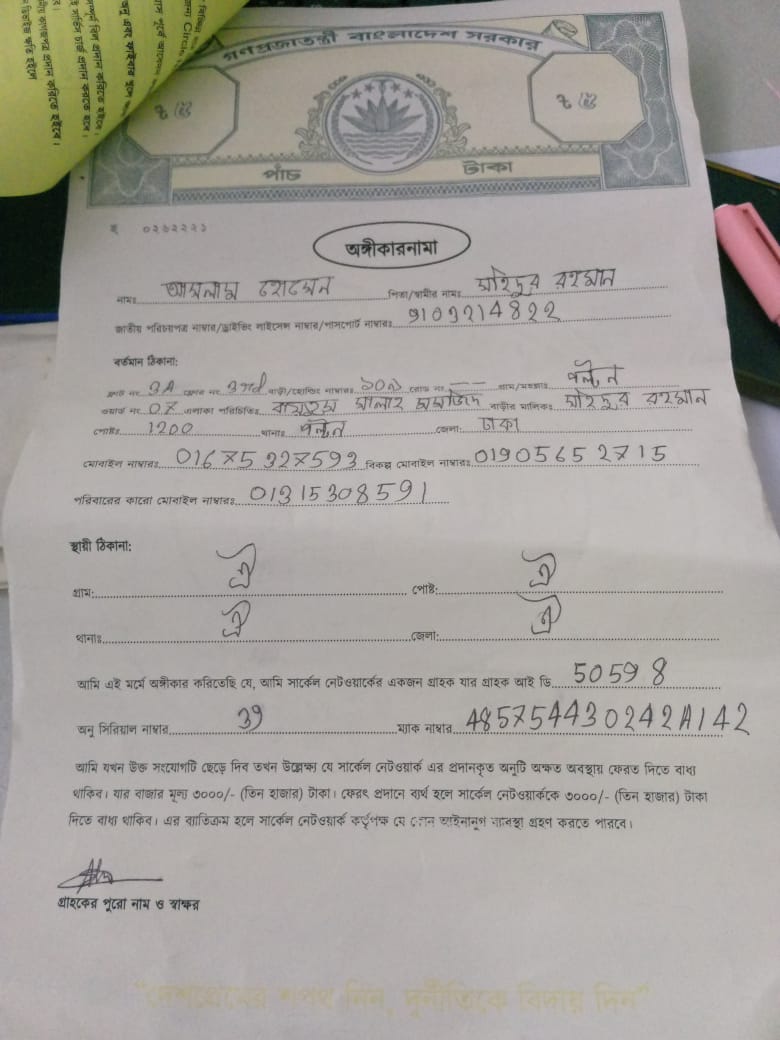 গণপ্রজাতন্ত্রী বাংলাদেশ সরকার
৳ ৫ ৳ ৫
পাঁচ টাকা
০২৬২২২১
অঙ্গীকারনামা
নামঃ আসলাম হোসেন পিতা/স্বামীর নামঃ মহিদুর রহমান
জাতীয় পরিচয়পত্র নাম্বার/ড্রাইভিং লাইসেন্স নাম্বার/পাসপোর্ট নাম্বারঃ 9103214822
বর্তমান ঠিকানা:
ফ্ল্যাট নং 3A ফ্লোর নং 3rd বাড়ী/হোল্ডিং নাম্বারঃ রোড নং -- গ্রাম/মহল্লাঃ পল্টন
ওয়ার্ড নং 07 এলাকা পরিচিতিঃ মসজিদ বাড়ীর মালিকঃ মহিদুর রহমান
পোষ্টঃ 1200 থানাঃ পল্টন জেলা: ঢাকা
মোবাইল নাম্বারঃ 01675327593 বিকল্প মোবাইল নাম্বারঃ 01905652715
পরিবারের কারো মোবাইল নাম্বারঃ 01315308591
স্থায়ী ঠিকানা:
গ্রাম: ঐ পোষ্ট: ঐ
থানাঃ ঐ জেলা: ঐ
আমি এই মর্মে অঙ্গীকার করিতেছি যে, আমি সার্কেল নেটওয়ার্কের একজন গ্রাহক যার গ্রাহক আই ডি 50598
অনু সিরিয়াল নাম্বার 39 ম্যাক নাম্বার 485754430242A142
আমি যখন উক্ত সংযোগটি ছেড়ে দিব তখন উল্লেক্ষ্য যে সার্কেল নেটওয়ার্ক এর প্রদানকৃত অনুটি অক্ষত অবস্থায় ফেরত দিতে বাধ্য
থাকিব। যার বাজার মূল্য ৩০০০/- (তিন হাজার) টাকা। ফেরৎ প্রদানে ব্যর্থ হলে সার্কেল নেটওয়ার্ককে ৩০০০/- (তিন হাজার) টাকা
দিতে বাধ্য থাকিব। এর ব্যাতিক্রম হলে সার্কেল নেটওয়ার্ক কর্তৃপক্ষ যে কোন আইনানুগ ব্যবস্থা গ্রহণ করতে পারবে।
গ্রাহকের পুরো নাম ও স্বাক্ষর
"দেশপ্রেমের শপথ নিন, দুর্নীতিকে বিদায় দিন"